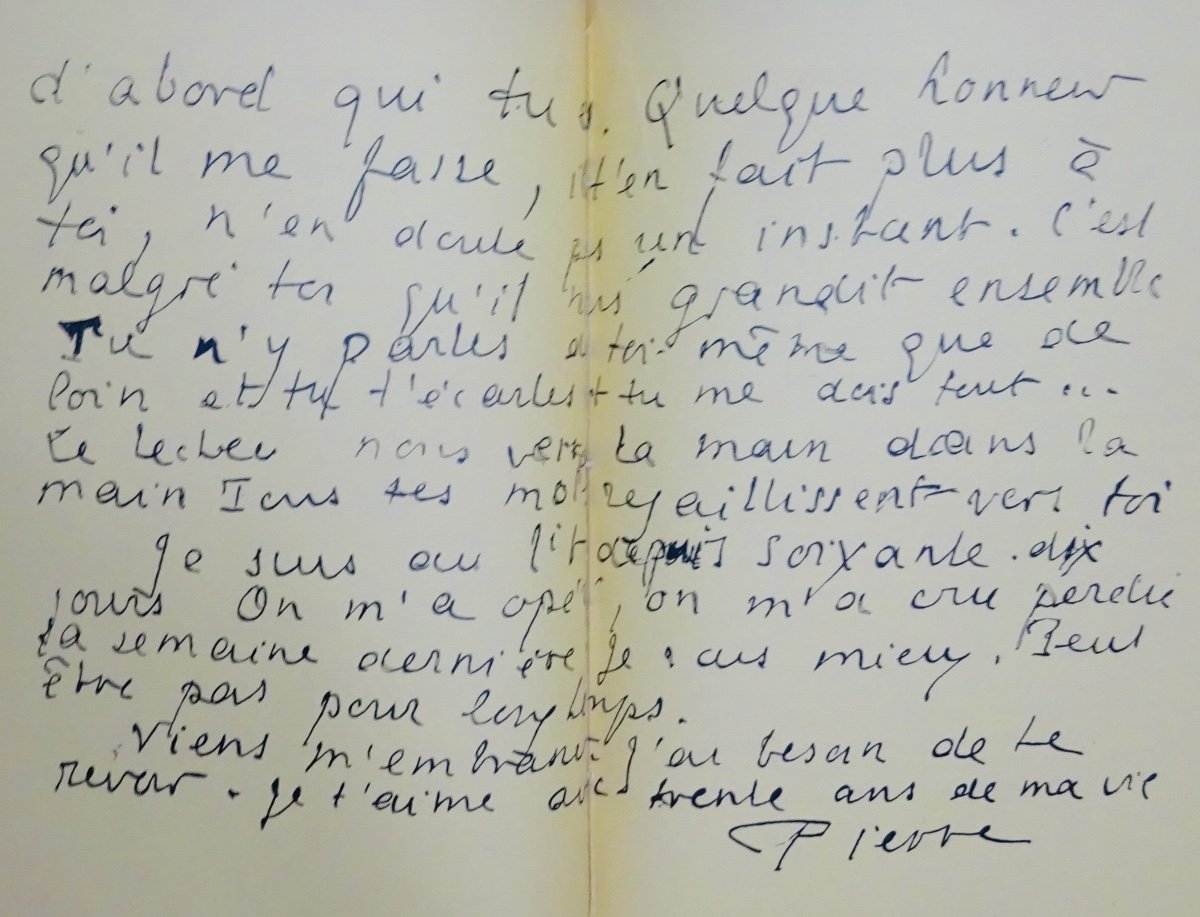 d'abord qui tu es. Quelque honneur
qu'il me fasse, il t'en fait plus à
toi, n'en doute pas un instant. C'est
malgré toi qu'il nous grandit ensemble
Tu n'y parles de toi-même que de
loin et tu t'écartes tu me dois tout...
Le lecteur nous verra la main dans la
main Tous tes mots rejaillissent vers toi
Je suis au lit depuis soixante.dix
jours On m'a opéré, on m'a cru perdu
la semaine dernière Je vais mieux. Peut
être pas pour longtemps.
Viens m'embrasser. J'ai besoin de te
revoir. Je t'aime avec trente ans de ma vie
Pierre